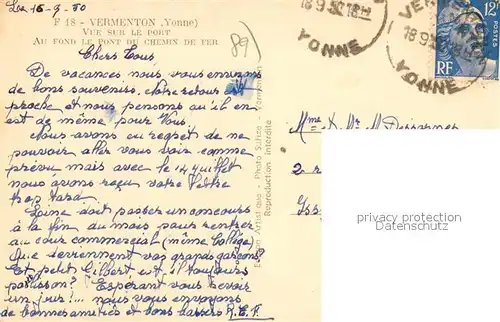 Le 16-9-50
F 18 - VERMENTON (Yonne)
VUE SUR LE PORT
AU FOND LE PONT DU CHEMIN DE FER
89)
Chers Tous
De vacances nous vous envoyons
de bons souvenirs. Notre retour est
proche et nous pensons qu'il en
est de même pour Vous.
Nous avons eu regret de ne
pouvoir aller vous voir comme
prévu mais avec le 14 juillet
nous avons reçu votre lettre
trop tard.
doit passer un concours
à la fin du mois pour rentrer
au cour commercial (même Collège)
Que deviennent vos grands garçons?
Et petit Gilbert est il toujours
polisson? Espérant vous revoir
un jour... nous vous envoyons
de bonnes amitiés et bons baisers R.E.F.
Edition Artistique - Photo - Vermenton
Reproduction Interdite
18-9
YONNE
18-9
YONNE
12F
POSTES
RF
Mme & Mr M
2 r
privacy protection
Datenschutz